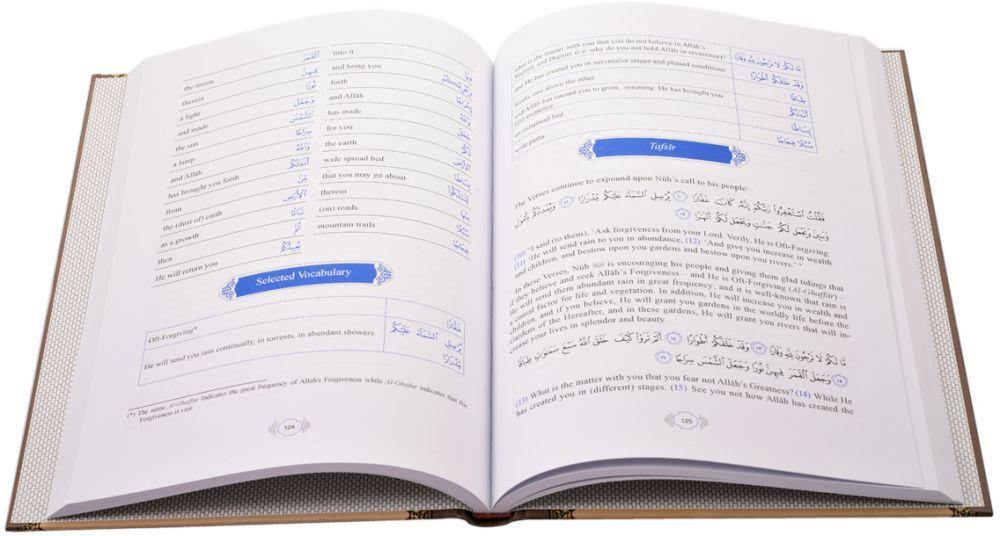 the moon ٱلْقَمَرَ into it
therein فِيهِنَّ and bring you
a light نُورًا forth
and made وَجَعَلَ and Allāh وَٱللَّهُ
the sun ٱلشَّمْسَ has made جَعَلَ
a lamp سِرَاجًا for you لَكُمُ
and Allāh وَٱللَّهُ the earth ٱلْأَرْضَ
has brought you forth أَنۢبَتَكُم wide spread bed بِسَاطًا
from مِّنَ that you may go about لِّتَسْلُكُوا۟
the (dust of) earth ٱلْأَرْضِ therein مِنْهَا
as a growth نَبَاتًا (on) roads سُبُلًا
then ثُمَّ mountain trails فِجَاجًا
He will return you يُعِيدُكُمْ
Selected Vocabulary
Oft-Forgiving* غَفَّارًا
He will send you rain continually, in torrents, in abundant showers يُرْسِلِ ٱلسَّمَآءَ عَلَيْكُم
مِّدْرَارًا
(*) The name Al-Ghaffar indicates the great frequency of Allāh's Forgiveness while Al-Ghafur indicates that His
Forgiveness is vast.
124
what is the matter with you that you do not believe in Allāh's
Majesty and Dignity (i.e. why do you not hold Allāh in reverence)* مَّا لَكُمْ لَا تَرْجُونَ لِلَّهِ وَقَارًا
and He has created you in successive stages and phased conditions وَقَدْ خَلَقَكُمْ أَطْوَارًا
levels, one above the other طِبَاقًا
and Allāh has caused you to grow, meaning: He has brought you
into existence أَنۢبَتَكُم
an outspread bed بِسَاطًا
wide paths سُبُلًا فِجَاجًا
Tafsīr
The Verses continue to expound upon Nūh's call to his people:
فَقُلْتُ ٱسْتَغْفِرُوا۟ رَبَّكُمْ إِنَّهُۥ كَانَ غَفَّارًا ١٠ يُرْسِلِ ٱلسَّمَآءَ عَلَيْكُم مِّدْرَارًا ١١ وَيُمْدِدْكُم بِأَمْوَٰلٍ
وَبَنِينَ وَيَجْعَل لَّكُمْ جَنَّٰتٍ وَيَجْعَل لَّكُمْ أَنْهَٰرًا ١٢
(10) "I said (to them), 'Ask forgiveness from your Lord. Verily, He is Oft-Forgiving.
(11) 'He will send rain to you in abundance, (12) 'And give you increase in wealth
and children, and bestow upon you gardens and bestow upon you rivers.' "
In these Verses, Nūh is encouraging his people and giving them glad tidings that
if they believe and seek Allāh's Forgiveness – and He is Oft-Forgiving (Al-Ghaffār) –
He will send them abundant rain in great frequency; and it is well-known that rain is
a causal factor for life and vegetation. In addition, He will increase you in wealth and
children, and if you believe, He will grant you gardens in the worldly life before the
Gardens of the Hereafter, and in these gardens, He will grant you rivers that will in-
crease your lives in splendor and beauty.
مَّا لَكُمْ لَا تَرْجُونَ لِلَّهِ وَقَارًا ١٣ وَقَدْ خَلَقَكُمْ أَطْوَارًا ١٤ أَلَمْ تَرَوْا۟ كَيْفَ خَلَقَ ٱللَّهُ سَبْعَ سَمَٰوَٰتٍ طِبَاقًا
١٥ وَجَعَلَ ٱلْقَمَرَ فِيهِنَّ نُورًا وَجَعَلَ ٱلشَّمْسَ سِرَاجًا ١٦
(13) What is the matter with you that you fear not Allāh's Greatness? (14) While He
has created you in (different) stages. (15) See you not how Allāh has created the
125